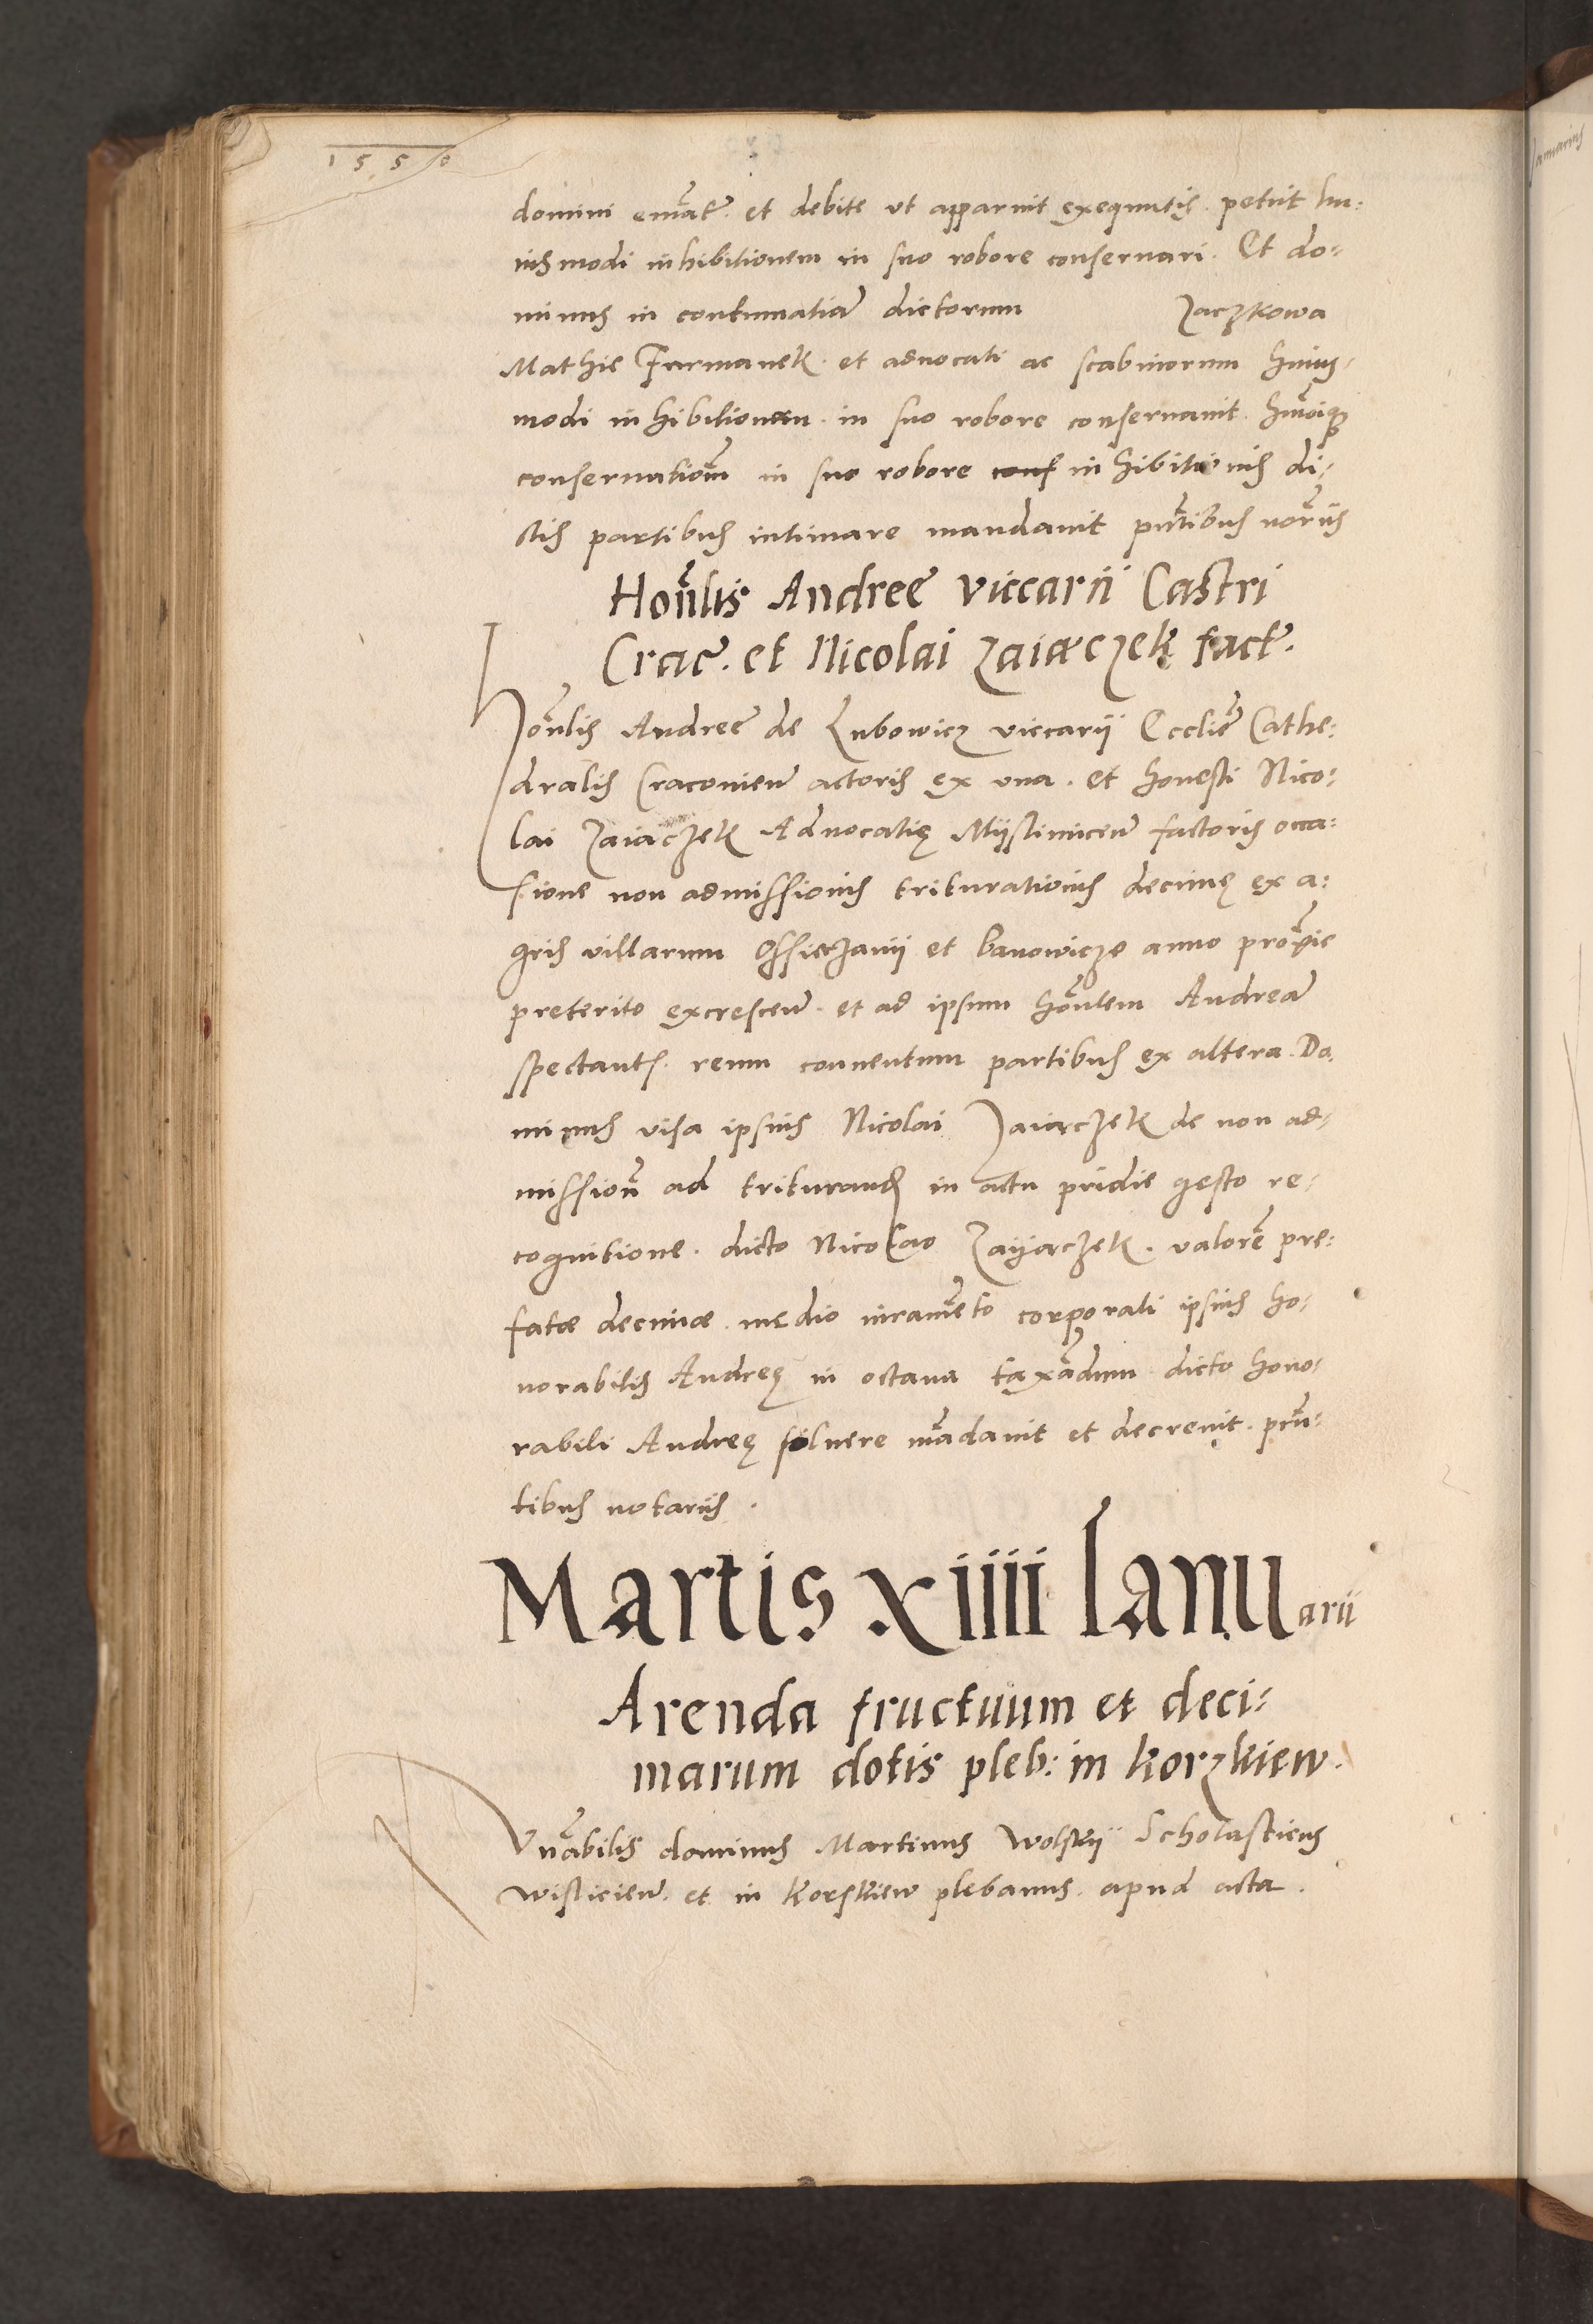 1550
domini emāt. et debite ut apparuit exequutis. petiit hu:
iusmodi inhibitionem in suo robore conseruari. Et do:
minus in contumatiā dictorum Zaczkowa
Mathie Furmanek. et aduocati ac scabinorum huius-
modi inhibitionem. in suo robore conseruauit. hmōiq;
conseruationē in suo robore conf inhibitionis di-
ctis partibus intimare mandauit pntibus norijs
Honlis Andree viccarii Castri
Crac. et Nicolai Zaiaczek fact.
Honlis Andree de Lubowicz viccarij Ecclie Cathe:
dralis Cracouien actoris ex una. et honesti Nico:
lai Zaiaczek Aduocatię Mijslimicen factoris occa:
sione non admissionis triturationis decimę ex a:
gris villarum Ossieczanij et Banowicze anno proxie
preterito excrescen. et ad ipsum honlem Andreā
spectant. reum conuentum partibus ex altera. Do
minus visa ipsius Nicolai Zaiaczek de non ad-
mission ad triturand in actu pridie gesto re-
cognitione. dicto Nicolao Zaijaczek. valorē pre:
fatæ decimæ medio iuramēto corporali ipsius ho-
norabilis Andreę in octaua taxādum dicto hono-
rabili Andreę soluere mādauit et decreuit. pnn-
tibus notariis.
Martis xiiii Ianuarii
Arenda fructuum et deci-
marum dotis pleb: in Korzkiew.
Vnabilis dominus Martinus Wolskij Scholasticus
Wislicien. et in Korzkiew plebanus. apud acta.
Januarius